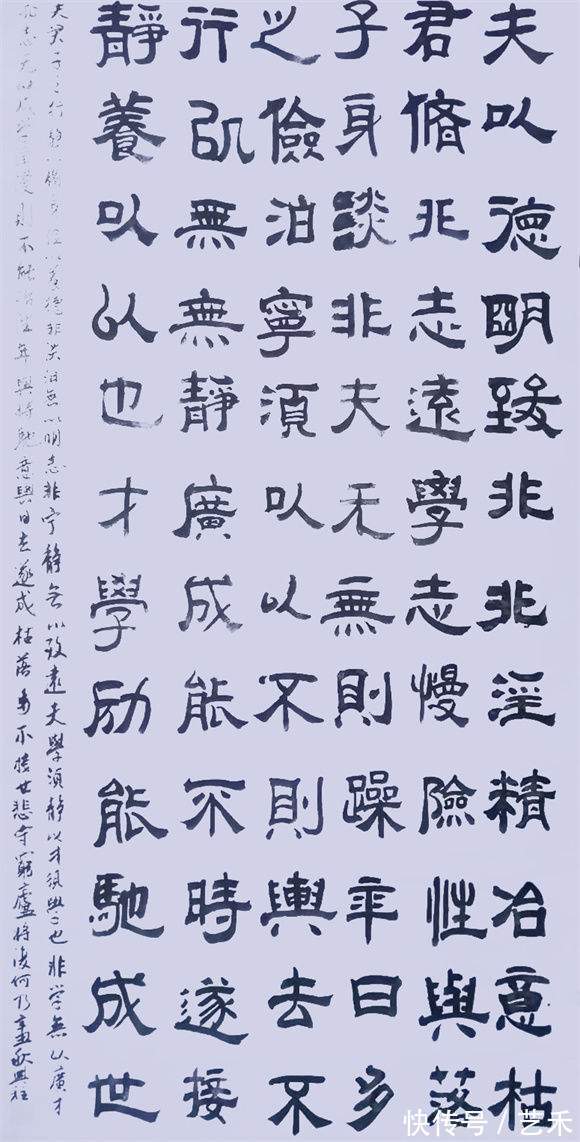 夫君子之行靜
以脩身儉㠯養
德非淡泊無以
明志非寧無以
致遠夫須靜也
非學无以廣才
非志無以成學
淫慢則不能励
精險躁則不能
冶性年與時馳
意與日去遂成
枯落多不接世
夫君子之行静以脩身儉以養德非淡泊無以明志非宁静無以致遠夫學須静以才須與也非学無以廣才
非志无以成學慢則不能冶性年與時馳意與日去遂成枯落多不接世悲守窮廬將復何乃
快传号/艺禾